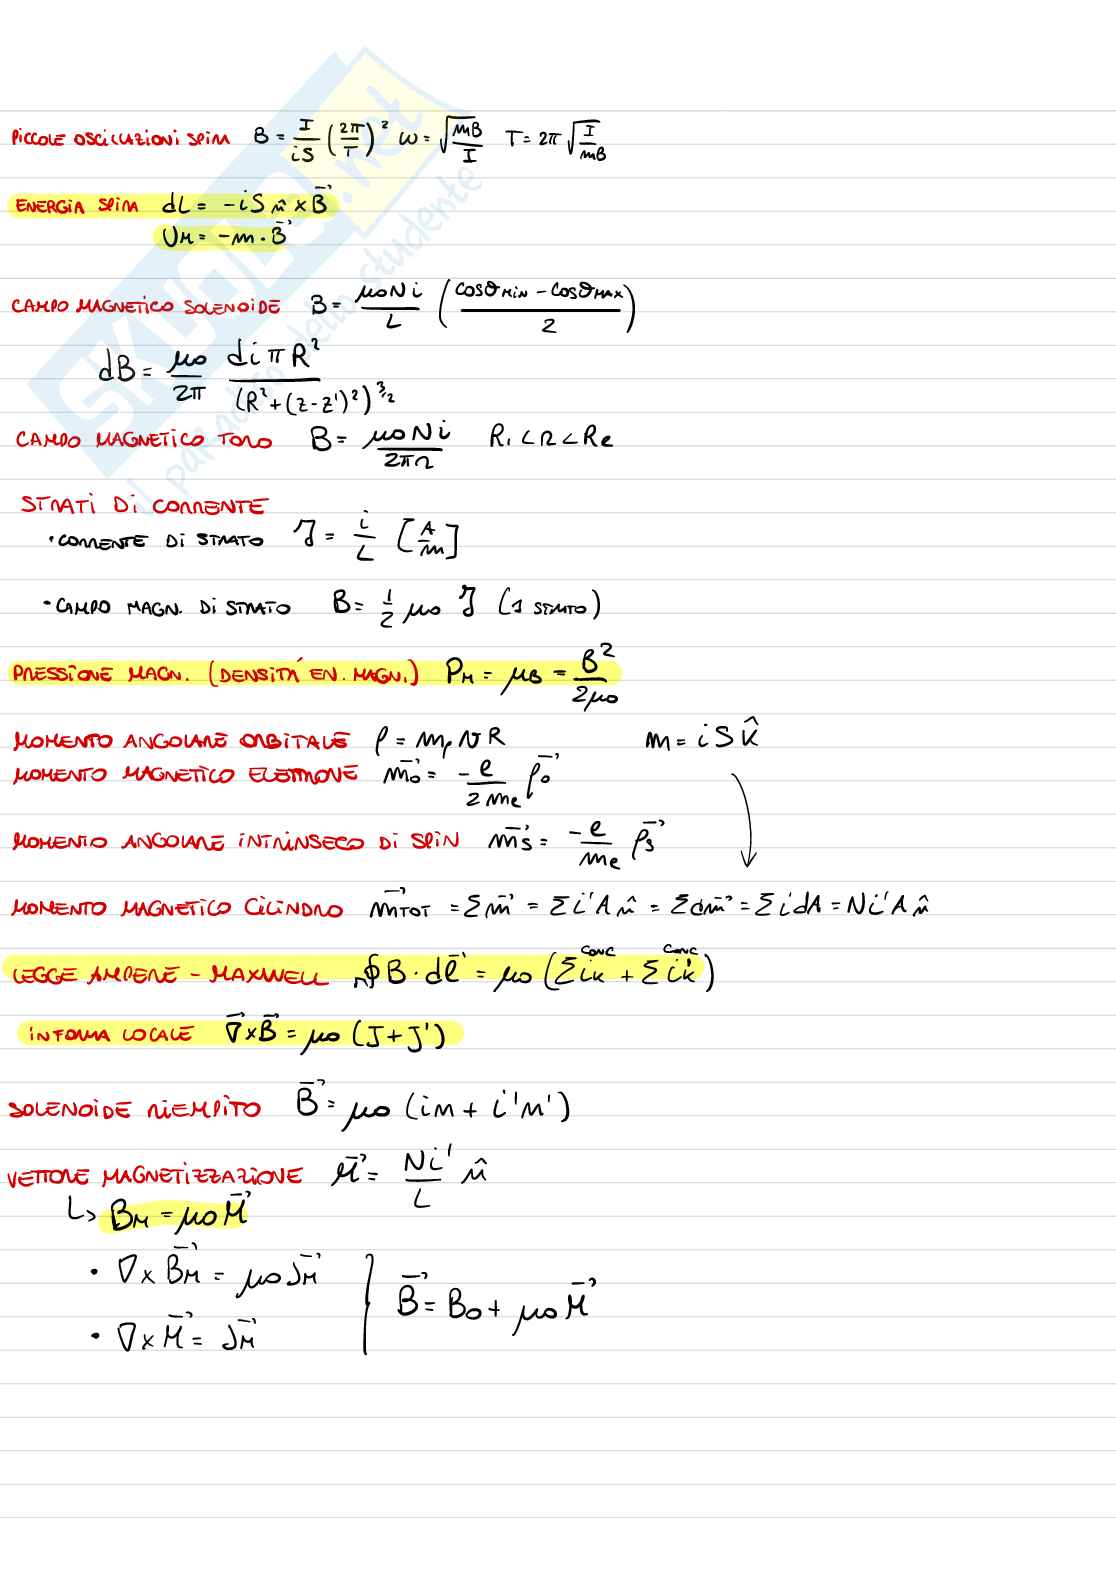 PICCOLE OSCILLAZIONI SPIRA B = I/iS (2π/T)² ω = √(mB/I) T = 2π √(I/mB)
ENERGIA SPIRA dL = -iS n̂ × B⃗
UM = -m · B⃗
CAMPO MAGNETICO SOLENOIDE B = μ0Ni/L ((cosθMIN - cosθMAX)/2)
dB = μ0/2π di π R²/(R²+(z-z')²)^3/2
CAMPO MAGNETICO TORO B = μ0Ni/2πr Ri < r < Re
STRATI DI CORRENTE
• CORRENTE DI STRATO J = i/L [A/m]
• CAMPO MAGN. DI STRATO B = 1/2 μ0 J (1 STRATO)
PRESSIONE MAGN. (DENSITÁ EN. MAGN.) PM = μB = B²/2μ0
MOMENTO ANGOLARE ORBITALE ρ = mp v R m = iS k̂
MOMENTO MAGNETICO ELETTRONE m⃗0 = -e/2me ρ⃗0
MOMENTO ANGOLARE INTRINSECO DI SPIN m⃗s = -e/me ρ⃗s
MOMENTO MAGNETICO CILINDRO m⃗TOT = Σm⃗ = Σi'A n̂ = Σdm⃗ = Σi'dA = Ni'A n̂
LEGGE AMPERE - MAXWELL ∮B · dl⃗ = μ0 (Σ ik conc + Σ i'k conc)
IN FORMA LOCALE ∇⃗×B⃗ = μ0 (J+J')
SOLENOIDE RIEMPITO B⃗ = μ0 (in + i'n')
VETTORE MAGNETIZZAZIONE M⃗ = Ni'/L n̂
↳ BM = μ0M⃗
• ∇×B⃗M = μ0J⃗M
B⃗ = B0 + μ0M⃗
• ∇×M⃗ = J⃗M
SKUOLA.net
il paradiso dello studente